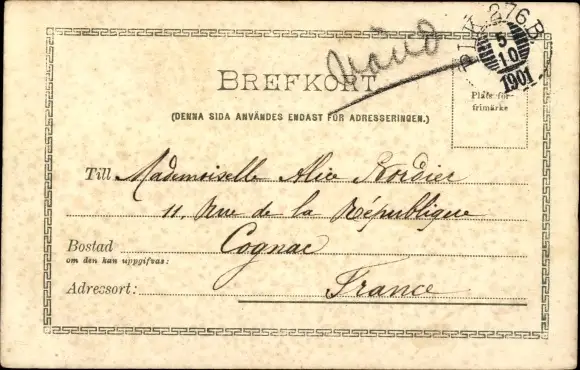 PLK 276.B
5
10
1901
BREFKORT
Plats för
frimärke
(DENNA SIDA ANVÄNDES ENDAST FÖR ADRESSERINGEN.)
Till Mademoiselle Alice Nordier
11, Rue de la République
Bostad Cognac
om den kan uppgifvas:
Adressort: France